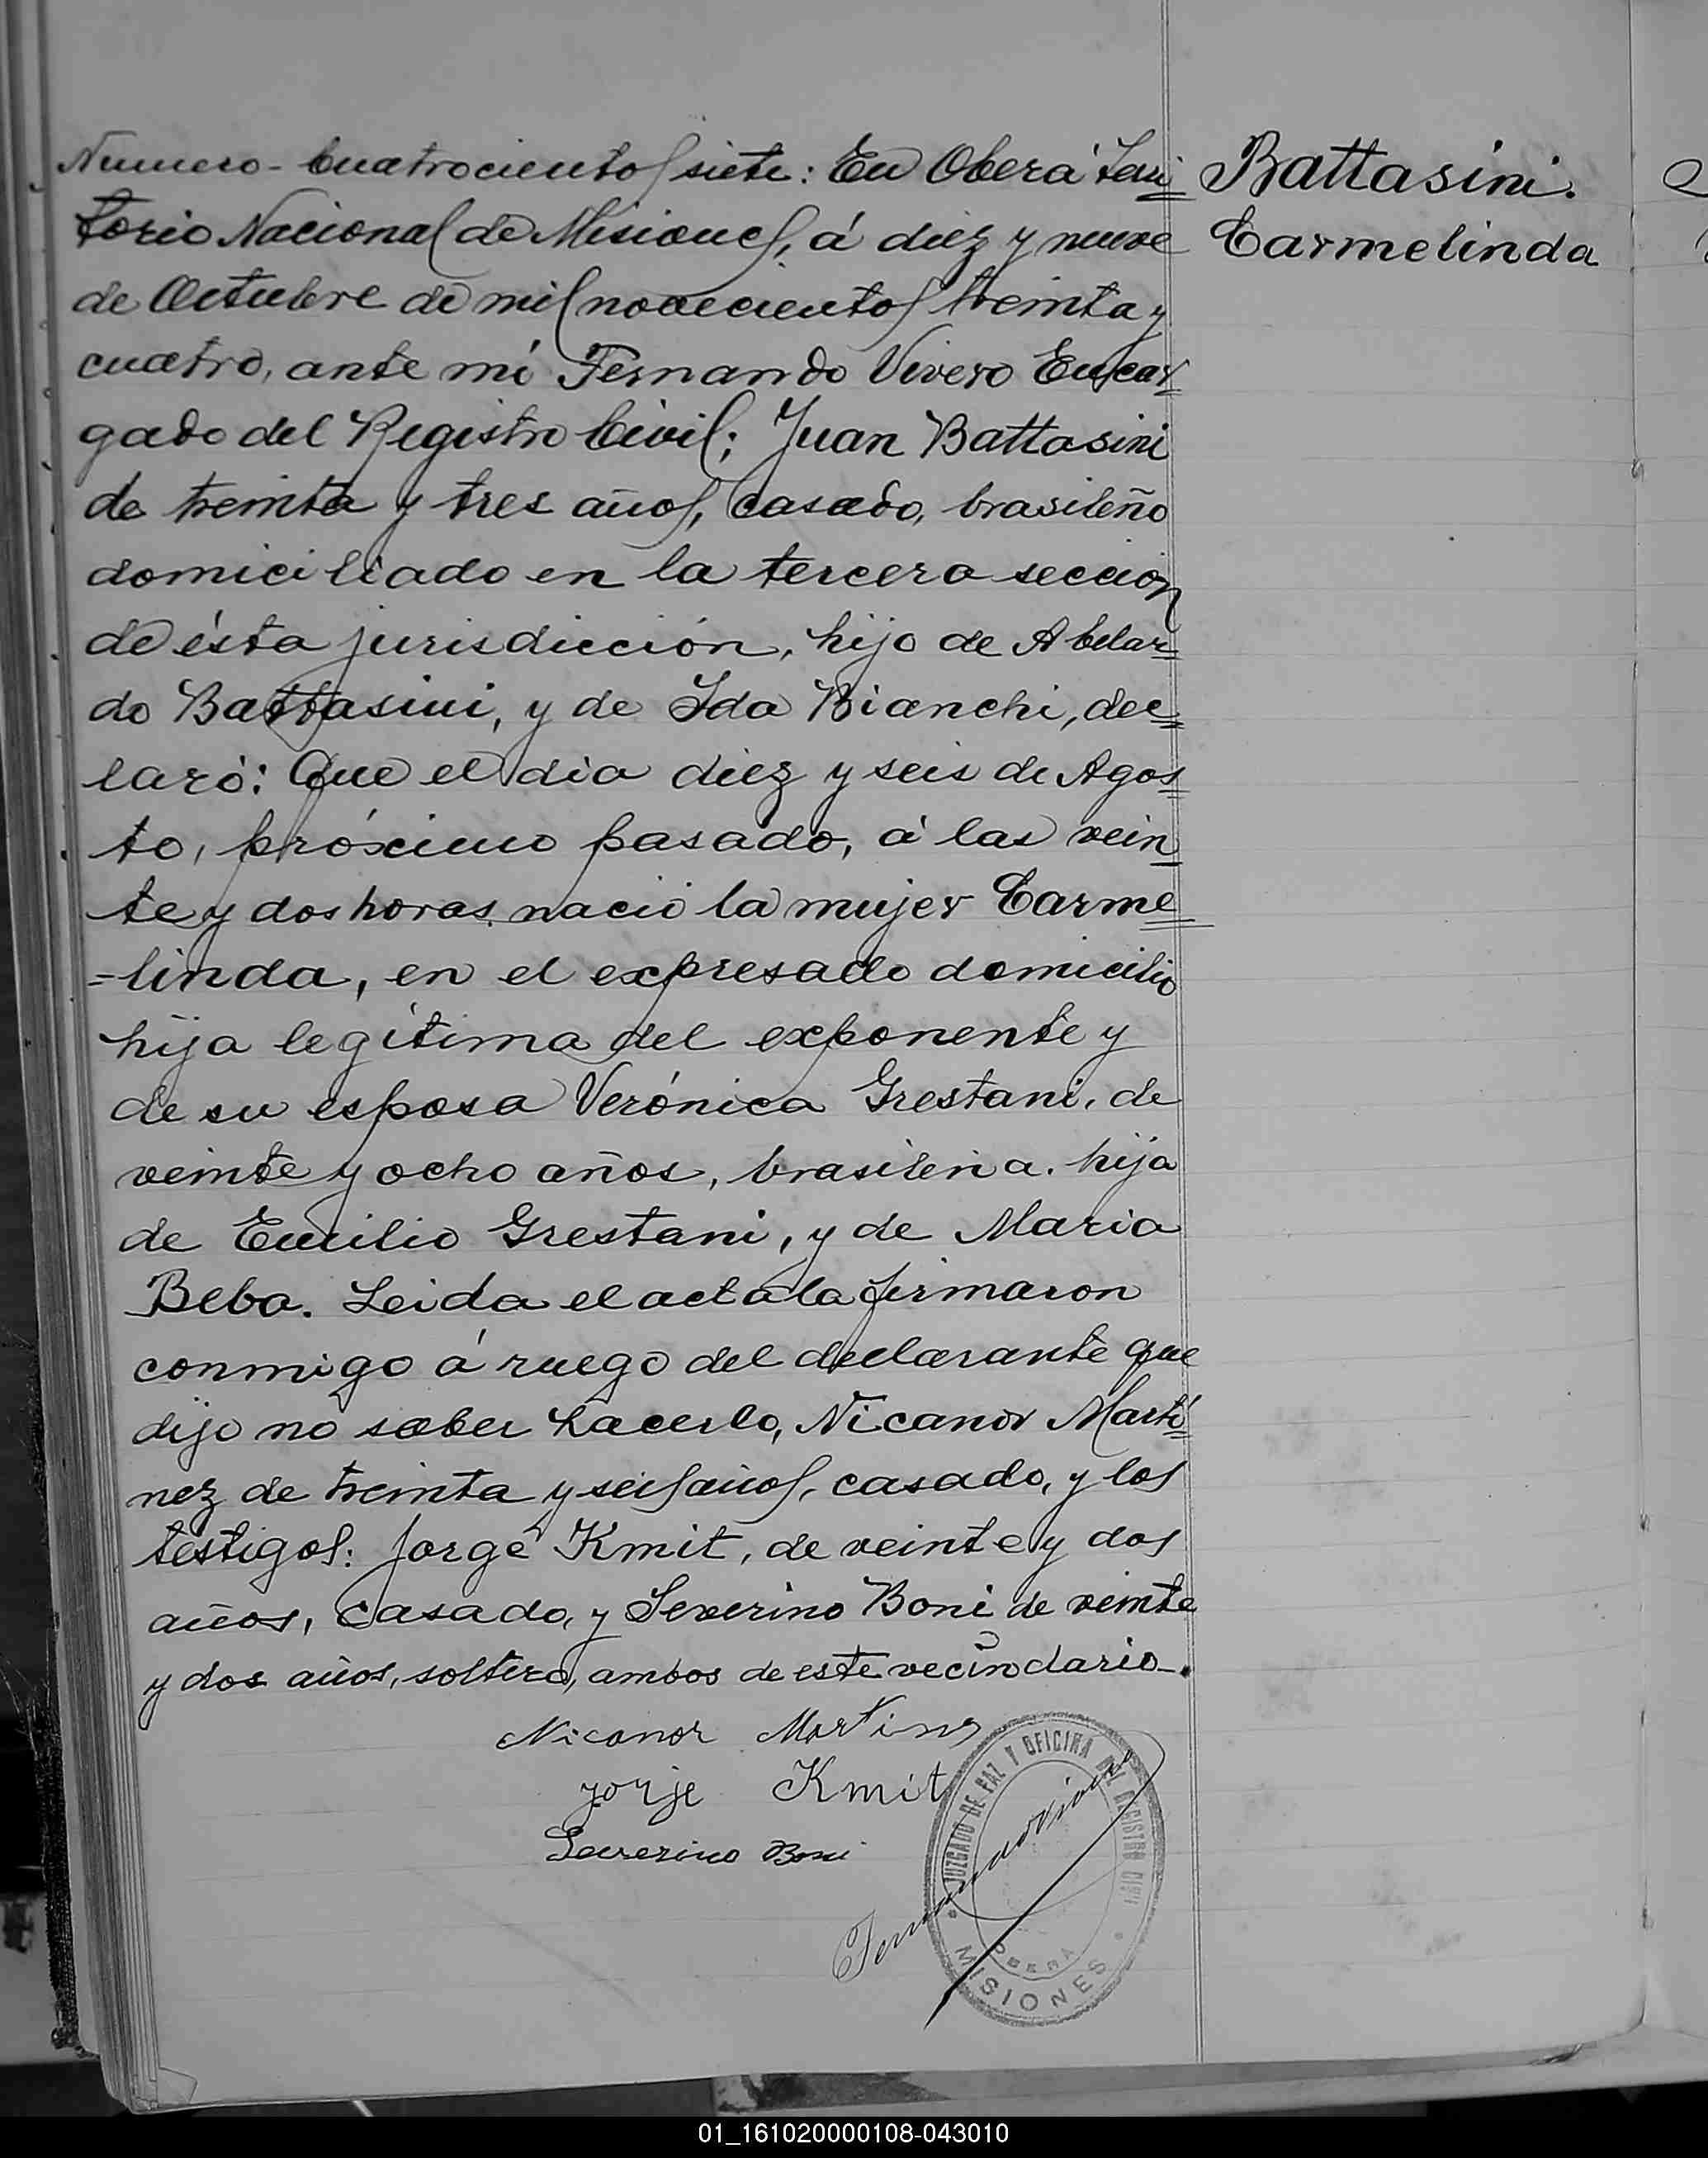 Battasini.
Carmelinda
Numero-Cuatrocientos siete: En Oberá Terri
torio Nacional de Misiones, á diez y nueve
de Octubre de mil novecientos treinta y
cuatro, ante mi Fernando Vivero Encar
gado del Registro Civil; Juan Battasini
de treinta y tres años, casado, brasileño
domiciliado en la tercera seccion
de ésta jurisdicción, hijo de Abelar
do Battasini, y de Ida Bianchi, dec
laró: Que el dia diez y seis de Agos
to, próximo pasado, á las vein
te y dos horas nació la mujer Carme
=linda, en el expresado domicilio
hija legítima del exponente y
de su esposa Verónica Grestani, de
veinte y ocho años, brasileña. hija
de Emilio Grestani, y de Maria
Beba. Leida el acta la firmaron
conmigo á ruego del declarante que
dijo no saber hacerlo, Nicanor Martí
nez de treinta y seis años, casado, y los
testigos: Jorge Kmit, de veinte y dos
años, casado, y Severino Boni de veinte
y dos años, soltero, ambos de este vecindario.
Nicanor Martines
Jorje Kmit
Severino Boni
Fernando Vivero
JUZGADO DE PAZ Y OFICINA DEL REGISTRO CIVIL
OBERA
MISIONES
01_161020000108-043010